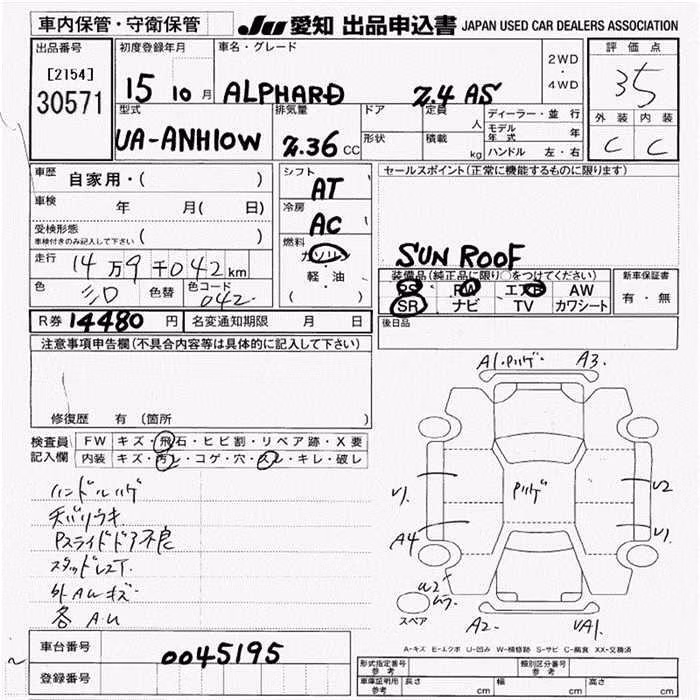 車内保管・守衛保管
JU 愛知 出品申込書 JAPAN USED CAR DEALERS ASSOCIATION
出品番号 初度登録年月 車名・グレード 2WD・4WD 評価点
[2154]
30571
15 10月 ALPHARD 2.4 AS 35
型式 排気量 ドア 定員 人 ディーラー・並行 外装 内装
UA-ANH10W 2.36 CC 形状 積載 kg モデル年式 年 C C
ハンドル 左・右
車歴 自家用・( ) シフト AT セールスポイント(正常に機能するものに限ります)
車検 年 月( 日) 冷房 AC
受検形態
車検付きのみ記入して下さい 燃料 ガソリン SUN ROOF
走行 14万9千042km 軽・油
色 シロ 色替 色コード 042 ( )
装備品(純正品に限り○をつけてください) 新車保証書
PS PW エアB AW 有・無
SR ナビ TV カワシート
R券 14480円 名変通知期限 月 日 後日品
注意事項申告欄(不具合内容等は具体的に記入して下さい)
修復歴 有 (箇所 )
検査員 FW キズ・飛石・ヒビ割・リペア跡・X要
記入欄 内装 キズ・汚レ・コゲ・穴・スレ・キレ・破レ
ハンドルハゲ
天バリウキ
Pスライドドア不良
スタッドレスT.
外AWキズ・
各AU
A1・Pハゲ A3.
Pハゲ
V1. U2
A4 V1.
U2
スペア A2. VA1.
A-キズ E-エクボ U-凹み W-補修跡 S-サビ C-腐食 XX-交換済
車台番号 0045195
登録番号
形式指定番号 参考 類別区分番号 参考
車庫証明用 参考 長さ cm 幅 cm 高さ cm